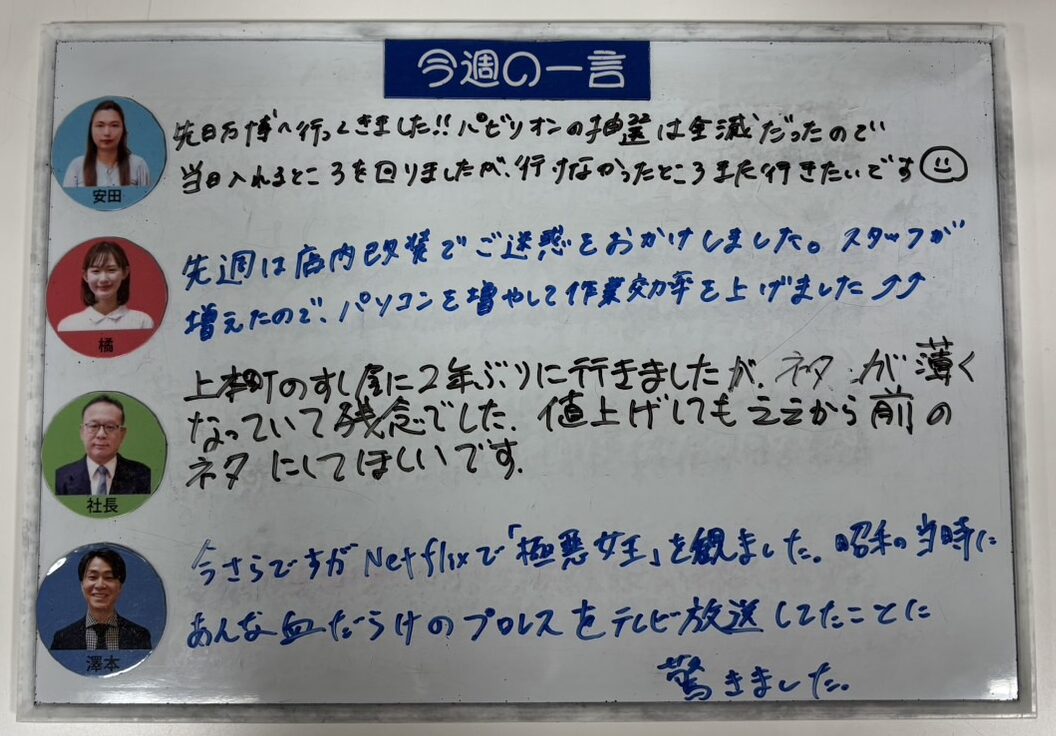 今週の一言
先日万博へ行ってきました!! パビリオンの抽選は全滅だったので
当日入れるところを回りましたが、行けなかったところまた行きたいです
安田
先週は店内改装でご迷惑をおかけしました。スタッフが
増えたので、パソコンを増やして作業効率を上げました⤴⤴
橘
上本町のすし屋に2年ぶりに行きましたが、ネタが薄く
なっていて残念でした。値上げしてもええから前の
ネタにしてほしいです。
社長
今さらですがNetflixで「極悪女王」を観ました。昭和の当時に
あんな血だらけのプロレスをテレビ放送してたことに
驚きました。
澤本